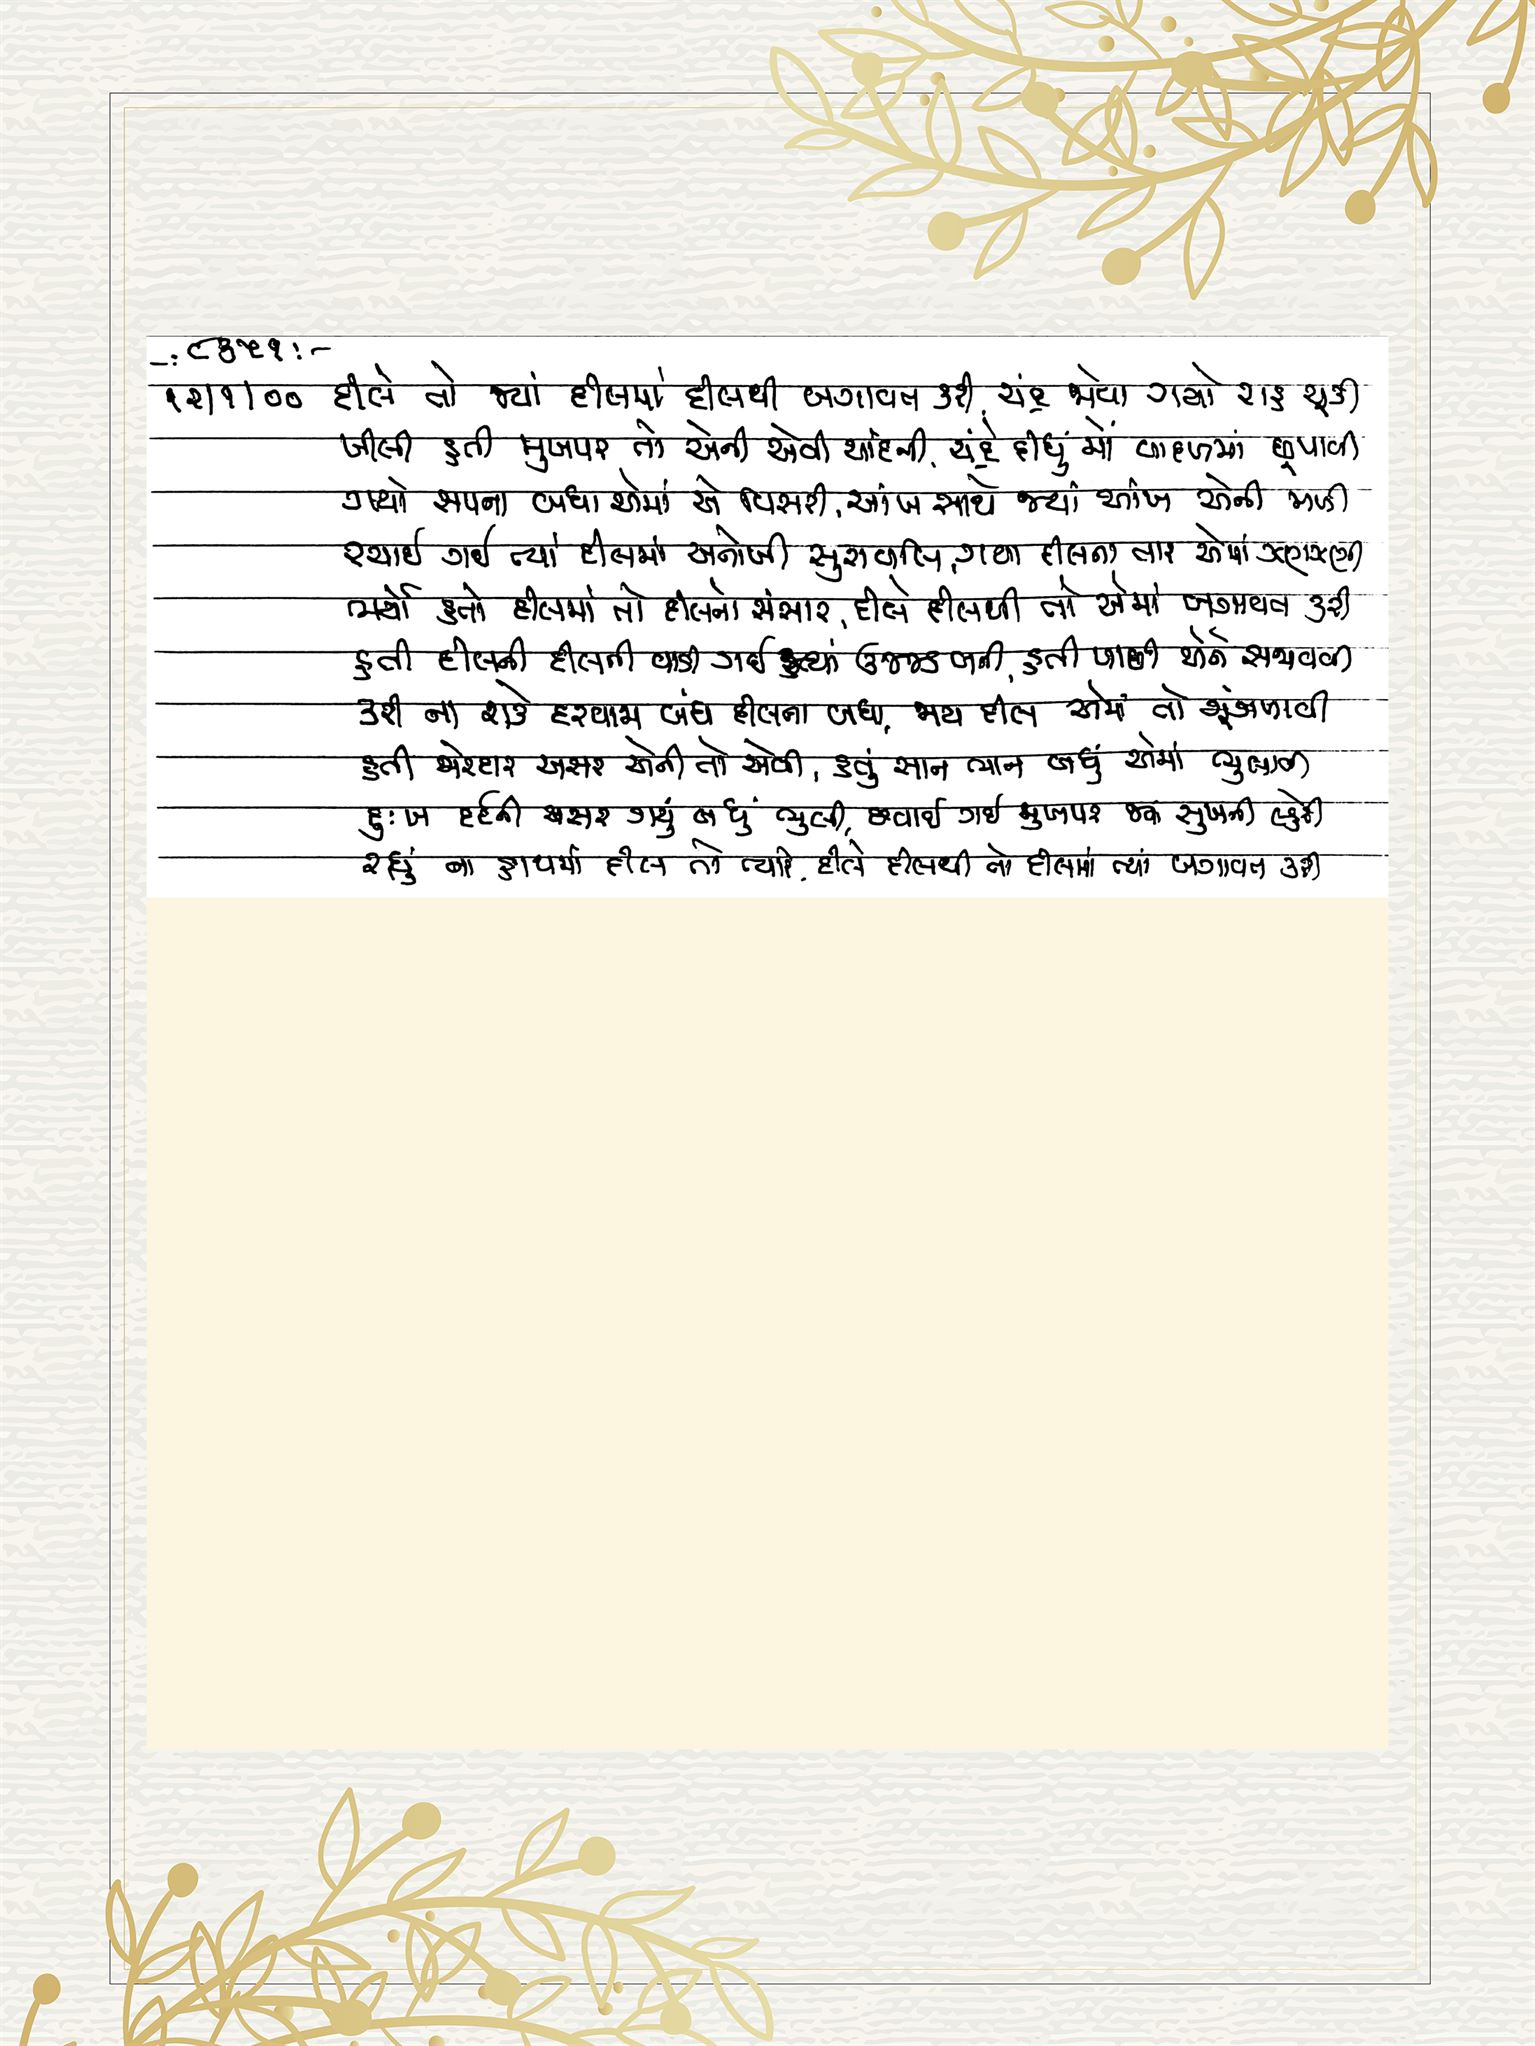 -: ૮૩૫૧ :-
૧૨/૧/૦૦ દીલે તો જ્યાં દીલમાં દીલથી બગાવત કરી, ચંદ્ર જોવા ગયો રાહ ચૂકી
ખીલી હતી મુજપર તો એની એવી ચાંદની, ચંદ્રે દીધું મોં વાદળમાં છૂપાવી
ગયો સપના બધા એમાં એ વિસરી, આંખ સાથે જ્યાં આંખ એની મળી
રચાઈ ગઈ ત્યાં દીલમાં અનોખી સુરાવલિ, ગયા દીલના તાર એમાં ઝણઝણી
ભર્યો હતો દીલમાં તો દીલનો સંસાર, દીલે દીલથી તો એમાં બગાવત કરી
હતી દીલની દીલની વાડી ગઈ ત્યાં ઉજ્જડ બની, હતી પાછી એને સજાવવી
કરી ના શકે દરવાજા બંધ દીલના બધા, ભય દીલ એમાં તો મૂંઝાવી
હતી જોરદાર અસર એની તો એવી, હતું સાન ભાન બધું એમાં ભુલાવી
દુઃખ દર્દની અસર ગયું બધું ભુલી, છવાઈ ગઈ મુજપર જ્યાં સુખની લહેરી
રહ્યું ના હાથમાં દીલ તો ત્યારે, દીલે દીલથી તો દીલમાં ત્યાં બગાવત કરી